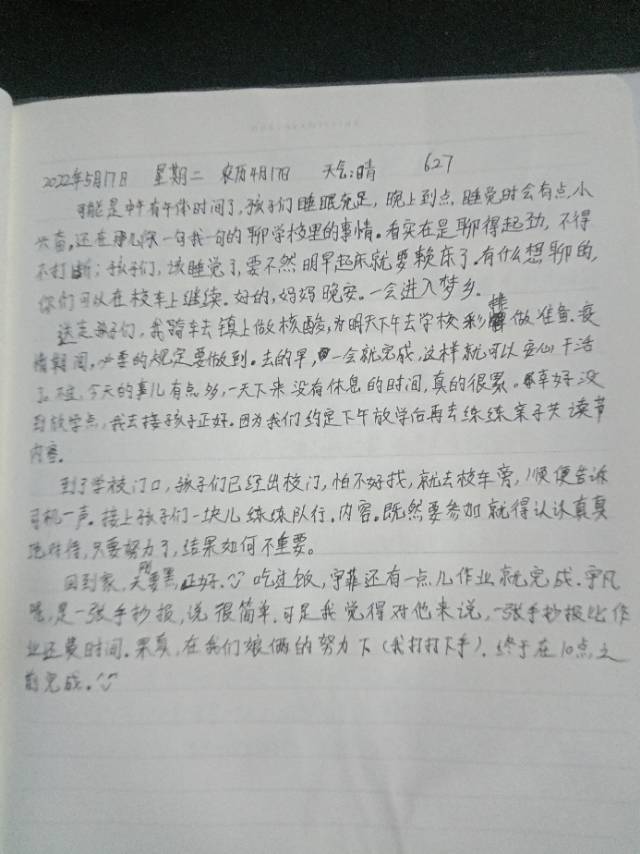 2022年5月17日 星期二 农历4月17日 天气:晴 627
可能是中午有午休时间了,孩子们睡眠充足,晚上到点,睡觉时会有点小
兴奋,还在那儿你一句我一句的聊学校里的事情。看实在是聊得起劲,不得
不打断;孩子们,该睡觉了,要不然明早起床就要赖床了。有什么想聊的,
你们可以在校车上继续。好的,妈妈晚安。一会进入梦乡。
送走孩子们,我骑车去镇上做核酸,为明天下午去学校彩排做准备。疫
情期间,必要的规定要做到。去的早,一会就完成,这样就可以安心干活
了。不过,今天的事儿有点多,一天下来没有休息的时间,真的很累。幸好没
到放学点,我去接孩子正好。因为我们约定下午放学后再去练练亲子共读节
内容。
到了学校门口,孩子们已经出校门,怕不好找,就去校车旁,顺便告诉
司机一声。接上孩子们一块儿练练队行。内容。既然要参加就得认认真真
地对待,只要努力了,结果如何不重要。
回到家,天刚要黑,正好。吃过饭,宇菲还有一点儿作业就完成。宇凡
呢,是一张手抄报,说很简单,可是我觉得对他来说,一张手抄报比作
业还费时间。果真,在我们娘俩的努力下(我打打下手),终于在10点之
前完成。